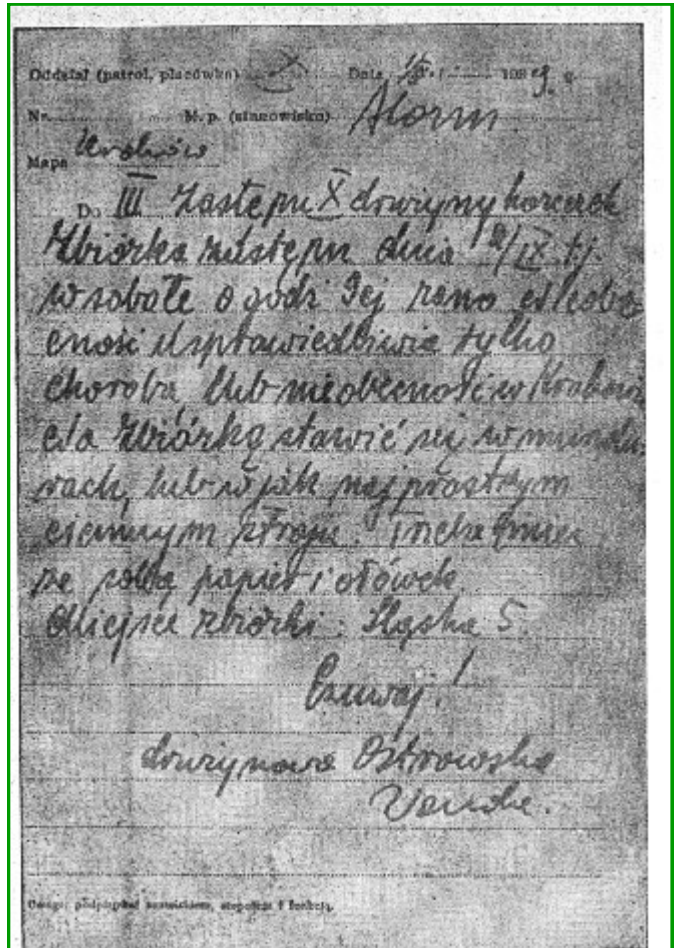 Oddział (patrol, placówka) X Data 1/9 193 9. g.
Nr. M. p. (stanowisko) Alarm
Mapa Kraków
Do III Zastępu X drużyny harcerek
Zbiórka zastępu dnia /IX t.j.
w sobotę o godz 9ej rano Nieobe
cność usprawiedliwia tylko
choroba, lub nieobecność w Krakowie
Na zbiórkę stawić się w mundu
rach, lub w jak najprostszym
ciemnym stroju. Trzeba mieć
ze sobą papier i ołówek.
Miejsce zbiórki: Śląska 5.
Czuwaj!
drużynowa Ostrowska
Wanda.
Uwaga: podpisywać nazwiskiem, stopniem i funkcją.